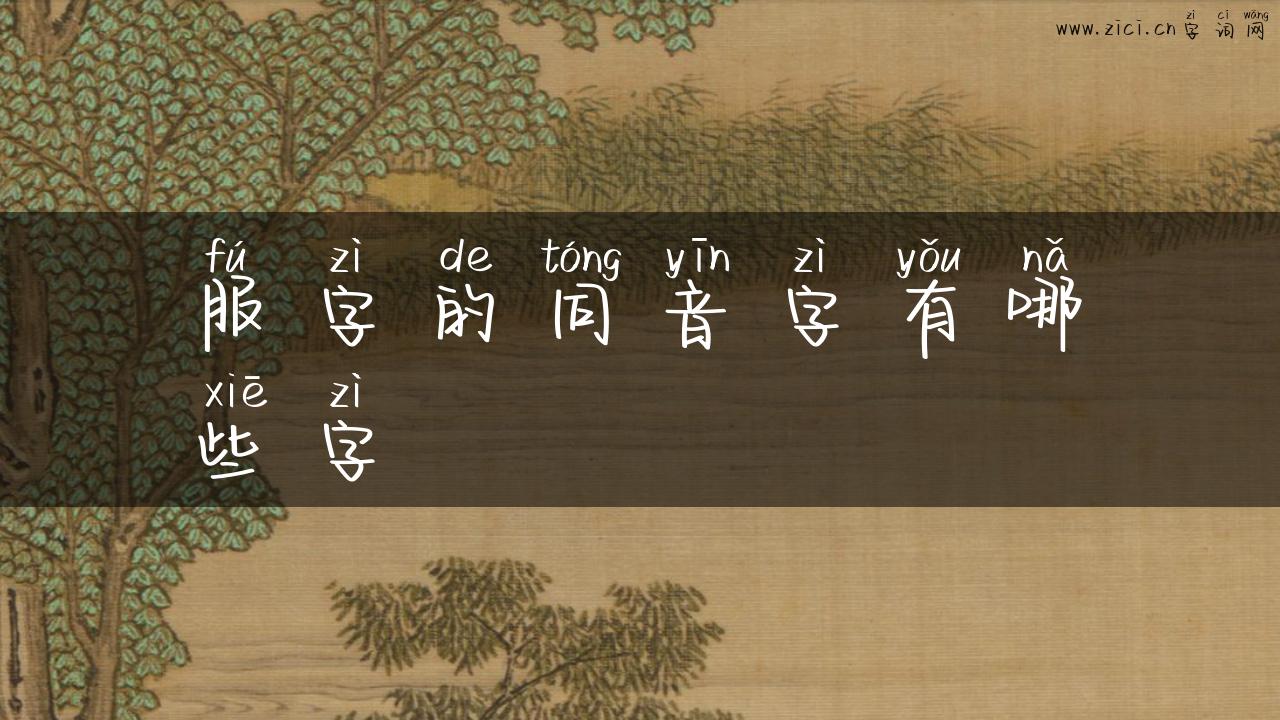 zì cí wǎng
www.zici.cn字词网
fú zì de tóng yīn zì yǒu nǎ
服字的同音字有哪
xiē zì
些字